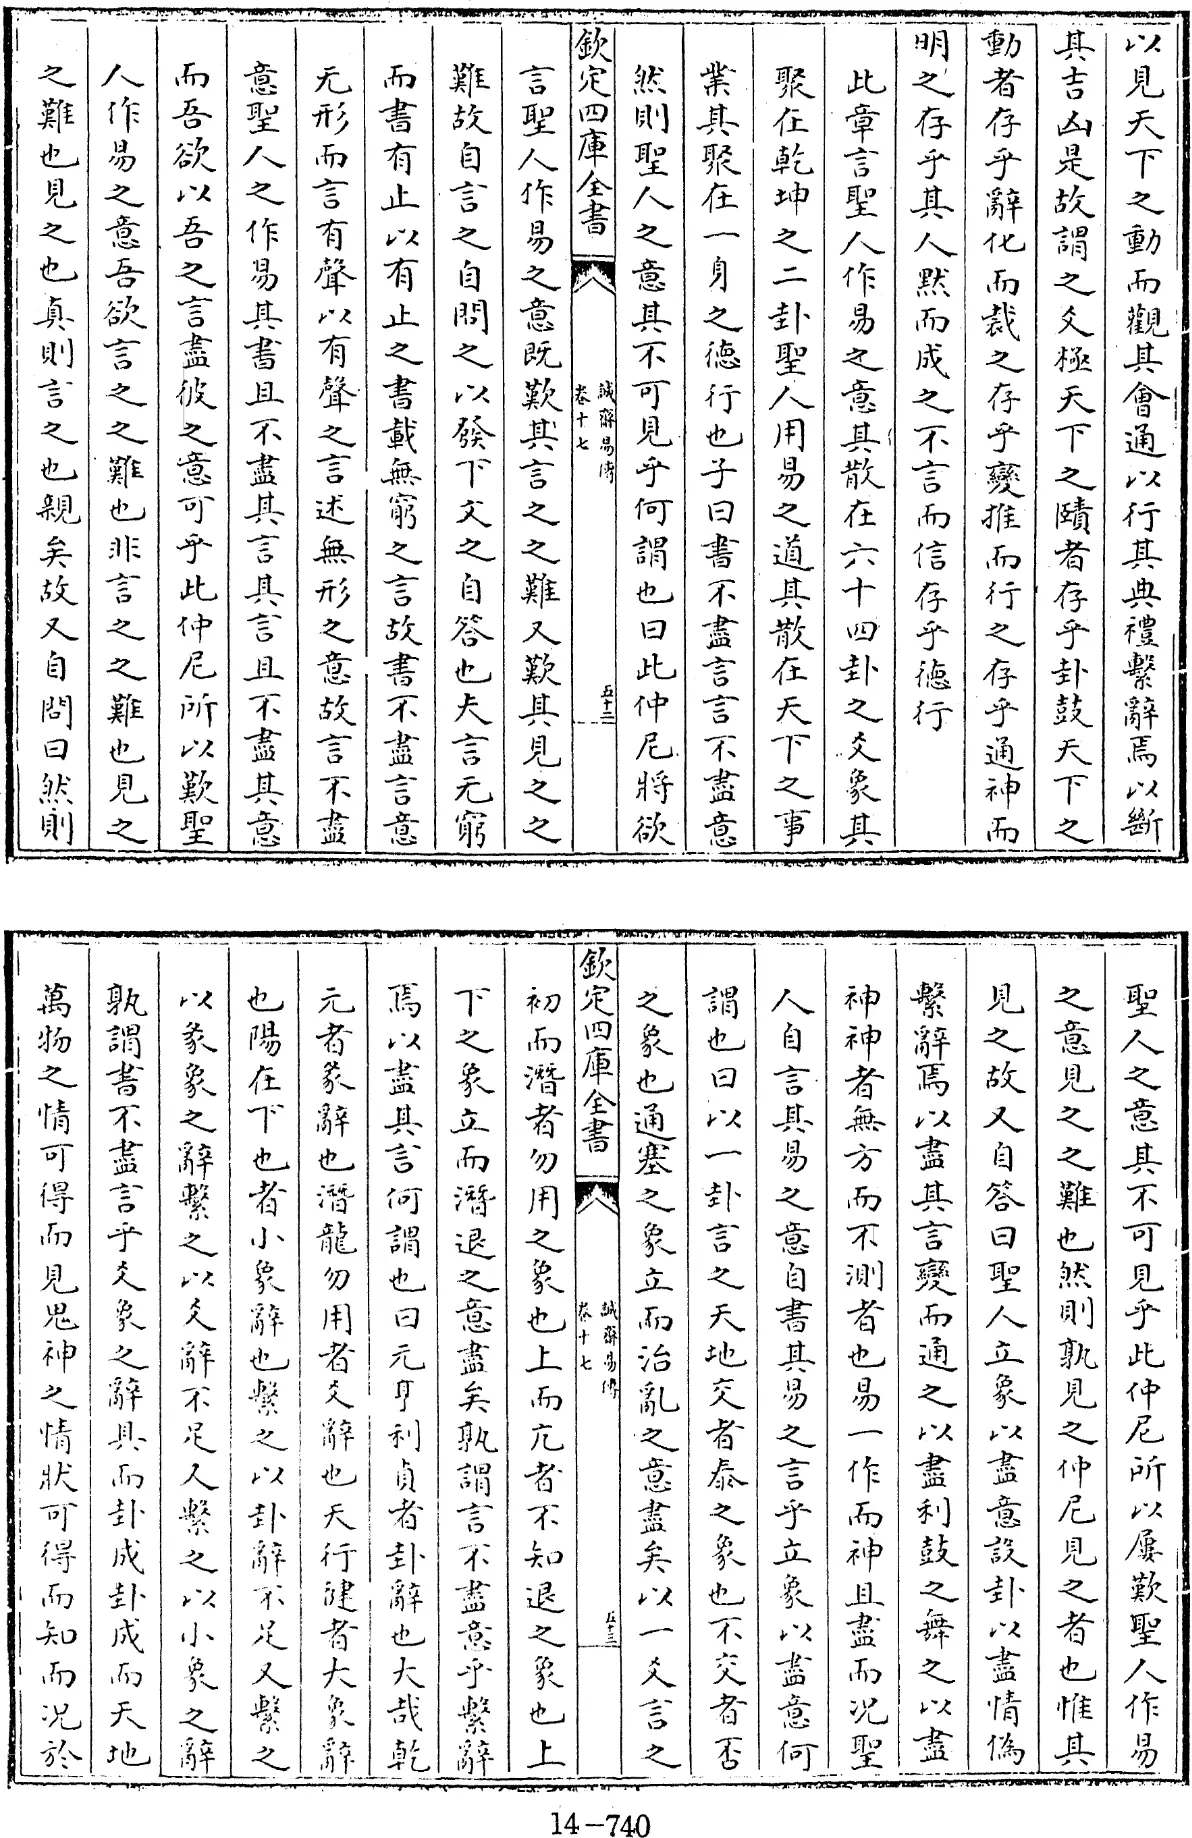 以見天下之動而觀其會通以行其典禮繫辭焉以斷
其吉凶是故謂之爻極天下之賾者存乎卦鼓天下之
動者存乎辭化而裁之存乎變推而行之存乎通神而
明之存乎其人黙而成之不言而信存乎德行
此章言聖人作易之意其散在六十四卦之爻象其
聚在乾坤之二卦聖人用易之道其散在天下之事
業其聚在一身之德行也子曰書不盡言言不盡意
然則聖人之意其不可見乎何謂也曰此仲尼將欲
欽定四庫全書
誠齋易傳
卷十七
五十三
言聖人作易之意既歎其言之之難又歎其見之之
難故自言之自問之以發下文之自答也夫言无窮
而書有止以有止之書載無窮之言故書不盡言意
无形而言有聲以有聲之言述無形之意故言不盡
意聖人之作易其書且不盡其言其言且不盡其意
而吾欲以吾之言盡彼之意可乎此仲尼所以歎聖
人作易之意吾欲言之之難也非言之之難也見之
之難也見之也真則言之也親矣故又自問曰然則
聖人之意其不可見乎此仲尼所以屢歎聖人作易
之意見之之難也然則孰見之仲尼見之者也惟其
見之故又自答曰聖人立象以盡意設卦以盡情偽
繫辭焉以盡其言變而通之以盡利鼓之舞之以盡
神神者無方而不測者也易一作而神且盡而况聖
人自言其易之意自書其易之言乎立象以盡意何
謂也曰以一卦言之天地交者泰之象也不交者否
之象也通塞之象立而治亂之意盡矣以一爻言之
欽定四庫全書
誠齋易傳
卷十七
五十三
初而潛者勿用之象也上而亢者不知退之象也上
下之象立而潛退之意盡矣孰謂言不盡意乎繫辭
焉以盡其言何謂也曰元亨利貞者卦辭也大哉乾
元者彖辭也潛龍勿用者爻辭也天行健者大象辭
也陽在下也者小象辭也繫之以卦辭不足又繫之
以彖象之辭繫之以爻辭不足人繫之以小象之辭
孰謂書不盡言乎爻象之辭具而卦成卦成而天地
萬物之情可得而見鬼神之情狀可得而知而况於
14-740